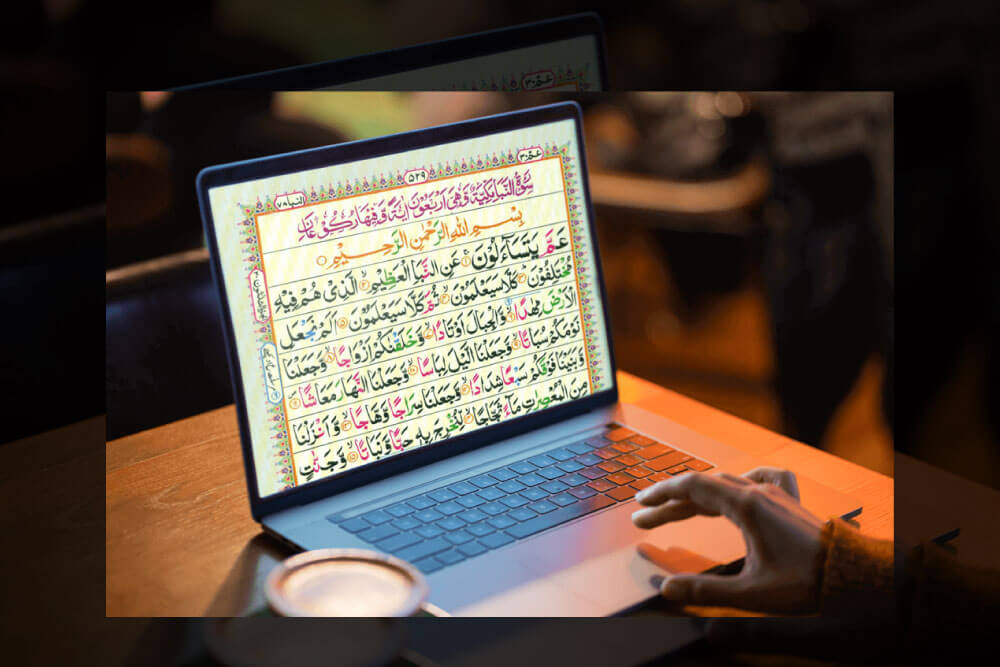 عَمَّ ٣٠
٥٢٩
النبا ٧٨
سُوْرَةُ النَّبَاِ مَكِّيَّةٌ وَّهِيَ اَرْبَعُوْنَ اٰيَةً وَّفِيْهَا رُكُوْعَانِ
بِسْمِ اللّٰهِ الرَّحْمٰنِ الرَّحِيْمِ
عَمَّ يَتَسَآءَلُوْنَ ۝١ عَنِ النَّبَاِ الْعَظِيْمِ ۝٢ الَّذِيْ هُمْ فِيْهِ
مُخْتَلِفُوْنَ ۝٣ كَلَّا سَيَعْلَمُوْنَ ۝٤ ثُمَّ كَلَّا سَيَعْلَمُوْنَ ۝٥ اَلَمْ نَجْعَلِ
الْاَرْضَ مِهٰدًا ۝٦ وَّالْجِبَالَ اَوْتَادًا ۝٧ وَّخَلَقْنٰكُمْ اَزْوَاجًا ۝٨ وَّجَعَلْنَا
نَوْمَكُمْ سُبَاتًا ۝٩ وَّجَعَلْنَا الَّيْلَ لِبَاسًا ۝١٠ وَّجَعَلْنَا النَّهَارَ مَعَاشًا ۝١١
وَّبَنَيْنَا فَوْقَكُمْ سَبْعًا شِدَادًا ۝١٢ وَّجَعَلْنَا سِرَاجًا وَّهَّاجًا ۝١٣ وَّاَنْزَلْنَا
مِنَ الْمُعْصِرٰتِ مَآءً ثَجَّاجًا ۝١٤ لِّنُخْرِجَ بِهٖ حَبًّا وَّنَبَاتًا ۝١٥ وَّجَنّٰتٍ